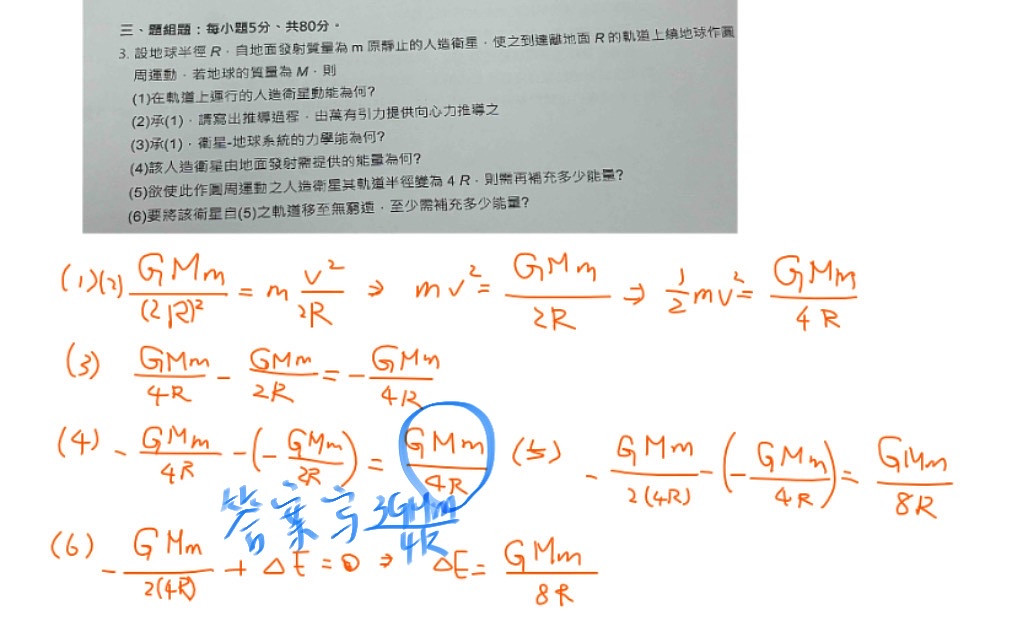 三、題組題：每小題5分、共80分。
3. 設地球半徑 R，自地面發射質量為 m 原靜止的人造衛星，使之到達離地面 R 的軌道上繞地球作圓
周運動，若地球的質量為 M，則
(1)在軌道上運行的人造衛星動能為何?
(2)承(1)，請寫出推導過程，由萬有引力提供向心力推導之
(3)承(1)，衛星-地球系統的力學能為何?
(4)該人造衛星由地面發射需提供的能量為何?
(5)欲使此作圓周運動之人造衛星其軌道半徑變為 4 R，則需再補充多少能量?
(6)要將該衛星自(5)之軌道移至無窮遠，至少需補充多少能量?
(1)(2) GMm/(2R)² = m v²/2R ⇒ mv² = GMm/2R ⇒ 1/2 mv² = GMm/4R
(3) GMm/4R - GMm/2R = - GMm/4R
(4) - GMm/4R - (- GMm/2R) = GMm/4R (5) - GMm/2(4R) - (- GMm/4R) = GMm/8R
答案寫 3GMm/4R
(6) - GMm/2(4R) + ΔE = 0 ⇒ ΔE = GMm/8R